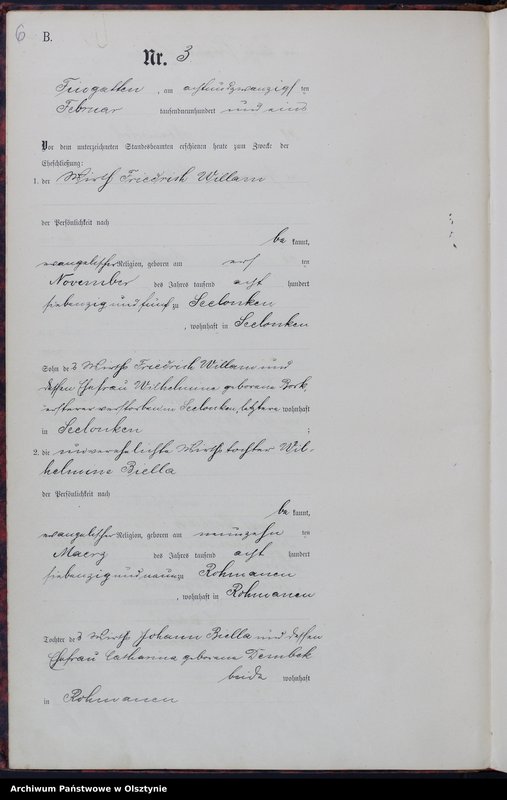 6
B.
Nr. 3
am achtundzwanzig ten
Februar tausendneunhundert und eins
Vor dem unterzeichneten Standesbeamten erschienen heute zum Zwecke der
Eheschließung:
1. der Wirth Friedrich Willam
der Persönlichkeit nach
be kannt,
evangelischer Religion, geboren am ten
November des Jahres tausend acht hundert
siebenzig und fünf zu Seelonken
, wohnhaft in Seelonken
Sohn des Wirths Friedrich Willam und
dessen Ehefrau Wilhelmine geborene Bork,
ersterer verstorben in Seelonken, letztere wohnhaft
in Seelonken ;
2. die unverehelichte Wirthstochter Wil-
helmine Biella
der Persönlichkeit nach
be kannt,
evangelischer Religion, geboren am neunzehn ten
Maerz des Jahres tausend acht hundert
siebenzig und neun zu Rohmanen
, wohnhaft in Rohmanen
Tochter des Wirths Johann Biella und dessen
Ehefrau Catharina geborene Dembek
beide wohnhaft
in Rohmanen
Archiwum Państwowe w Olsztynie